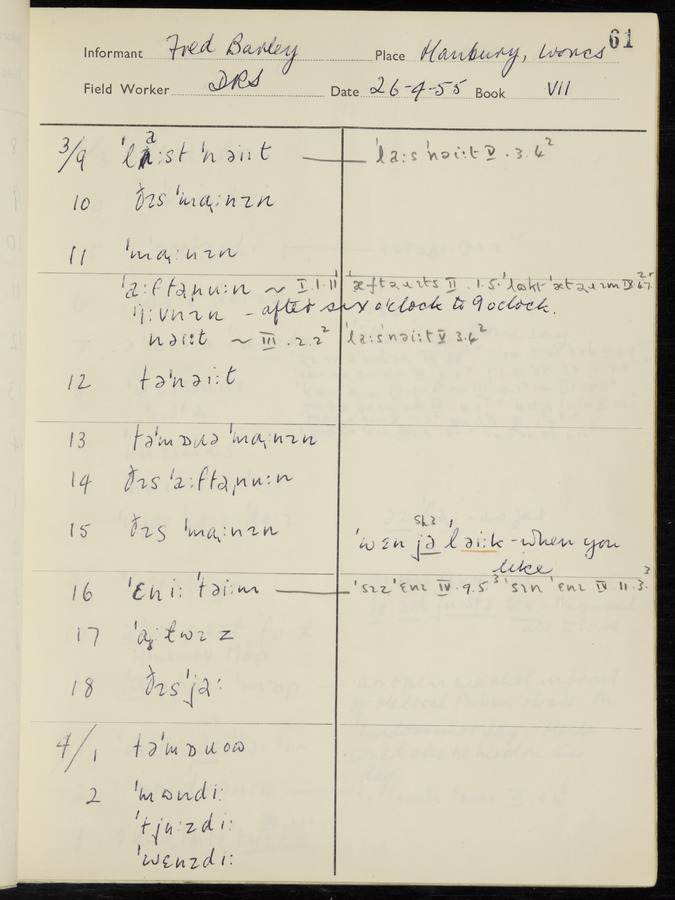 61
Informant Fred Barley Place Hanbury, Worcs
Field Worker DRS Date 26-4-55 Book VII
3/9 ˈla:st ˈnəi:t ˈla:sˈnəi:t V.3.6²
10 ðɪs ˈmɑ̧:nɪn
11 ˈmɑ̧:nɪn
ˈa:ftəɹnu:n ~ I.1.11
ˈi̧:vnɪn - after six o'clock to 9 oclock.
nəi:t ~ III.2.2² ˈla:sˈnəi:t V 3.6²
12 təˈnəi:t
13 təˈmɒɹə ˈmɑ̧:nɪn
14 ðɪs ˈa:ftəɹnu:n
15 ðɪs ˈmɑ̧:nɪn
ˈwɛn jə ˈləi:k - when you
like
16 ˈɛni: ˈtəi:m ˈsɪz ˈɛnɪ IV.9.5³ ˈsɪn ˈɛnɪ IV 11.3³
17 ˈɑ̧:twɪz
18 ðɪsˈjə:
4/1 təˈmɒɹoʊ
2 ˈmʊndi:
ˈtju:zdi:
ˈwɛnzdi: